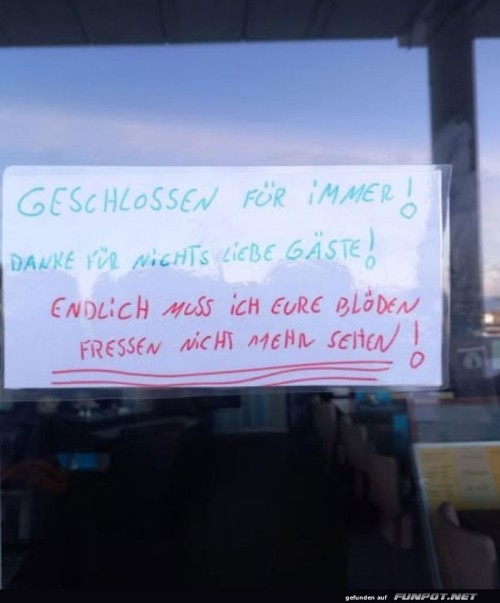 GESCHLOSSEN FÜR IMMER!
DANKE FÜR NICHTS LIEBE GÄSTE!
ENDLICH MUSS ICH EURE BLÖDEN
FRESSEN NICHT MEHR SEHEN!
gefunden auf FUNPOT.NET